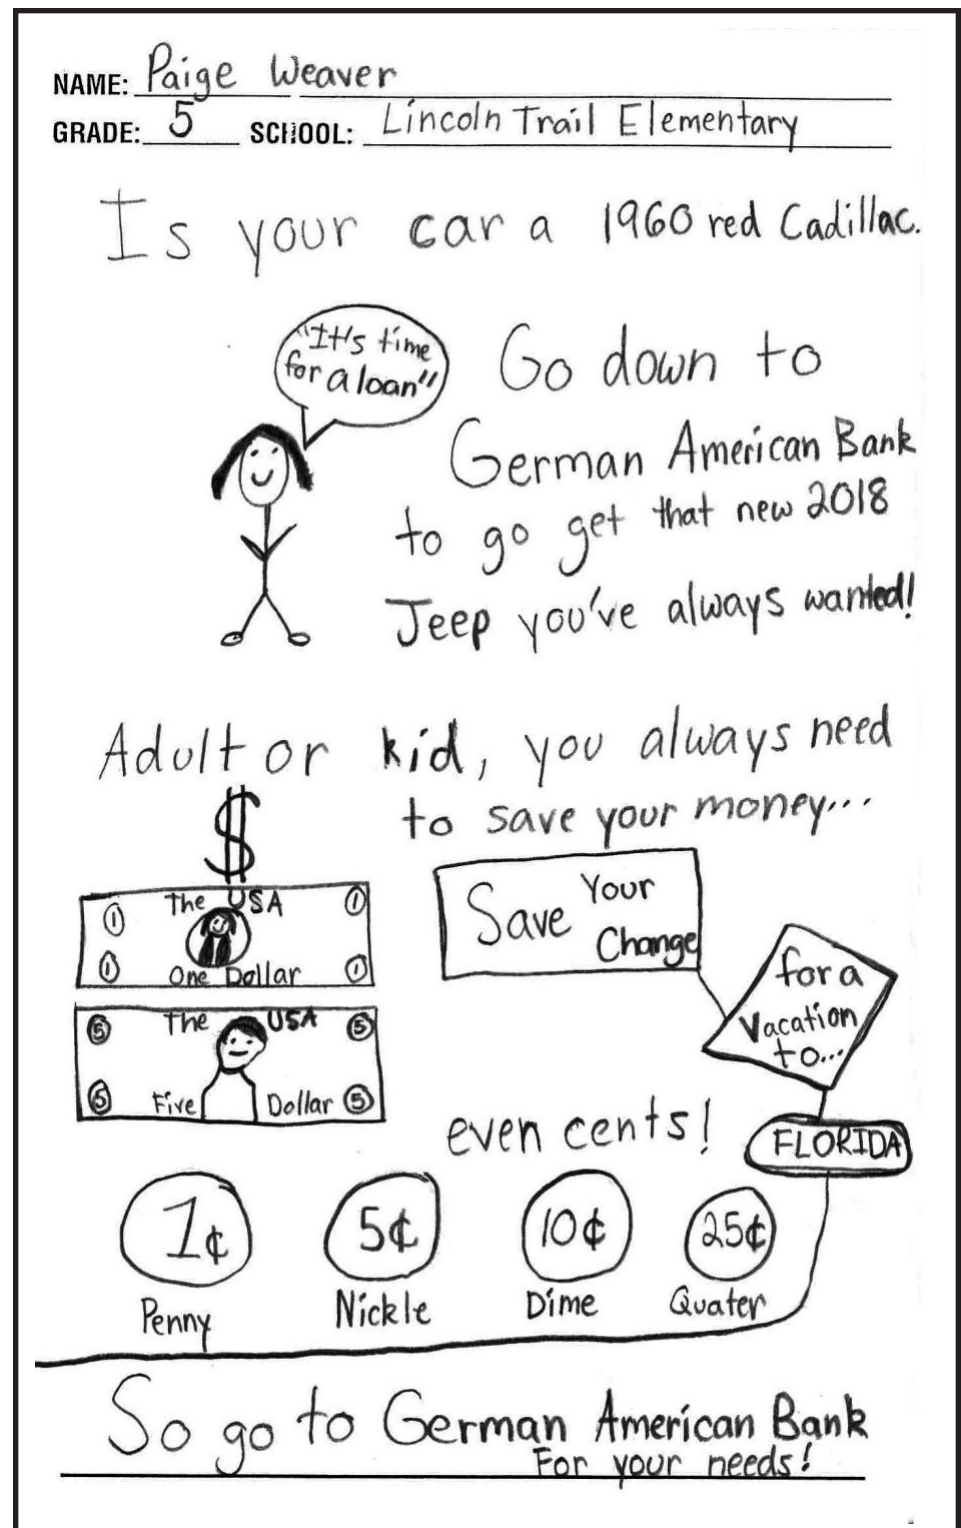 NAME: Paige Weaver
GRADE: 5 SCHOOL: Lincoln Trail Elementary
Is your car a 1960 red Cadillac.
"It's time
for a loan"
Go down to
German American Bank
to go get that new 2018
Jeep you've always wanted!
Adult or kid, you always need
to save your money...
$
The USA
1 1
1 1
One Dollar
The USA
5 5
5 5
Five Dollar
Save Your
Change
for a
Vacation
to...
FLORIDA
even cents!
1¢ 5¢ 10¢ 25¢
Penny Nickle Dime Quater
So go to German American Bank
For your needs!